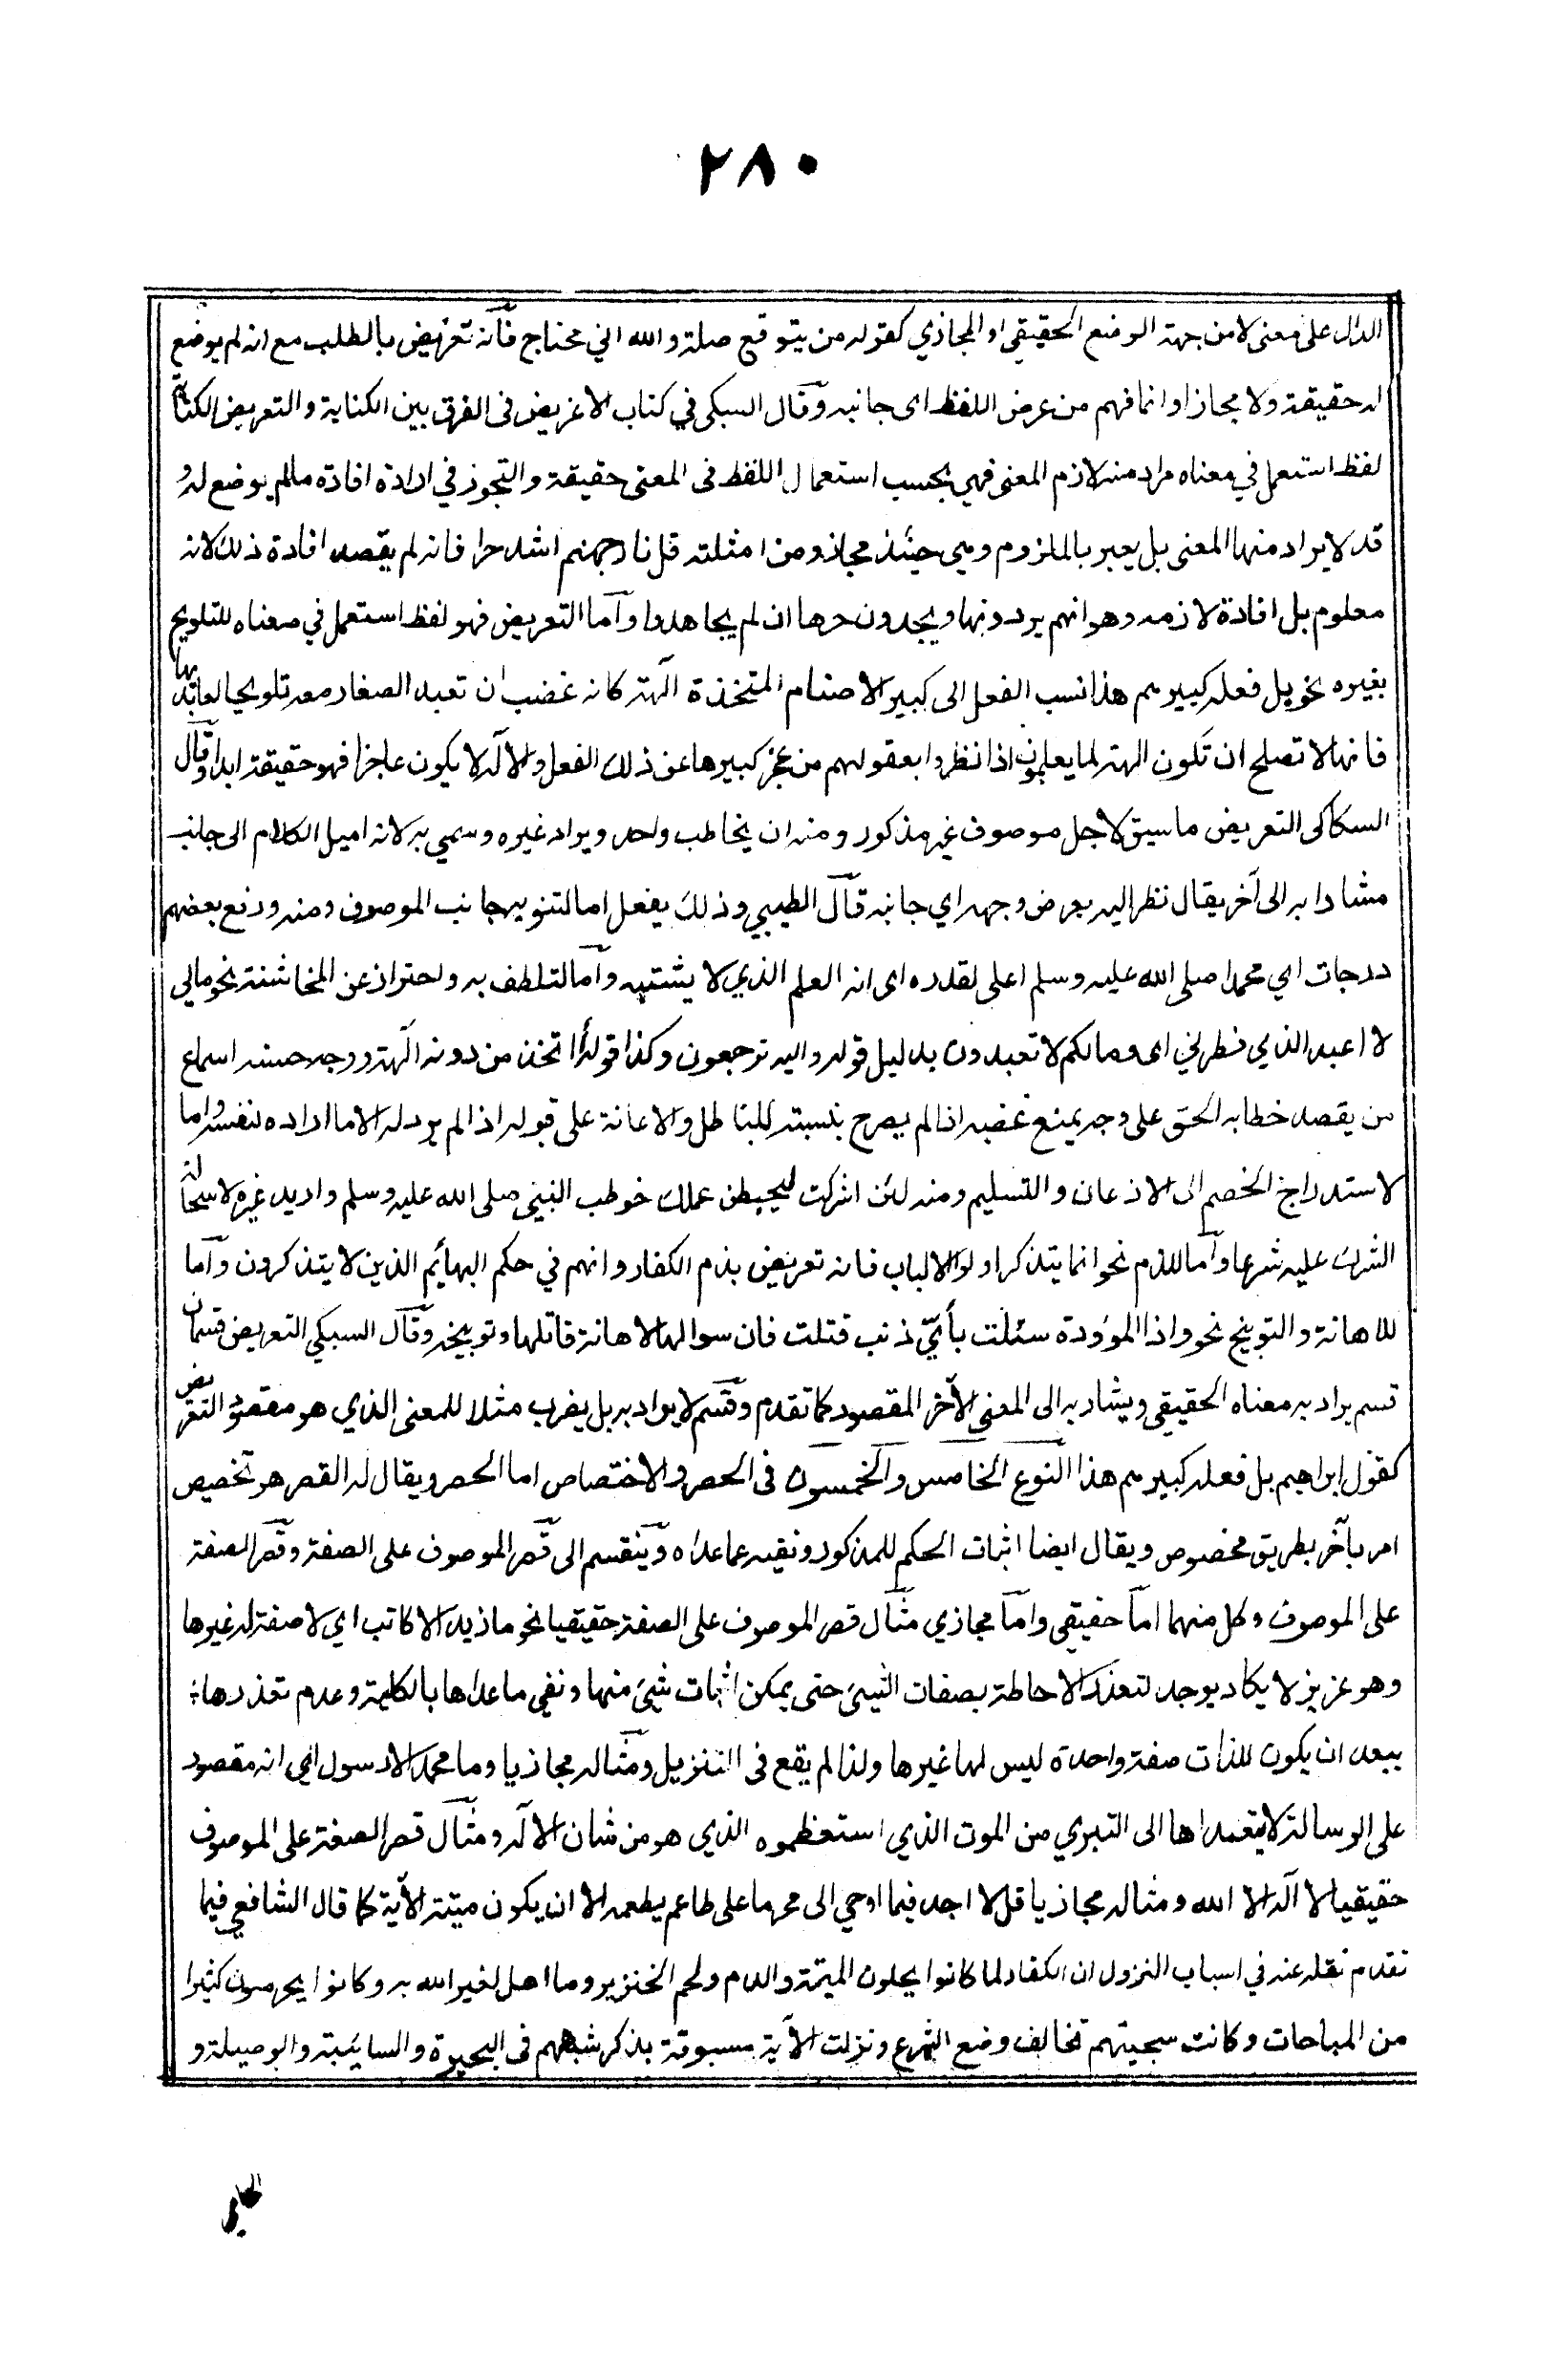 ٢٨٠
الدال على معنى لا من جهة الوضع الحقيقي او المجازي كقوله من يتوقع صلة والله اني محتاج فانه تعريض بالطلب مع انه لم يوضع
له حقيقة ولا مجازا وانما فهم من عرض اللفظ اى جانبه وقال السبكى في كتاب الاغريض فى الفرق بين الكناية والتعريض الكناية
لفظ استعمل في معناه مراد منه لازم المعنى فهي بحسب استعمال اللفظ فى المعنى حقيقة والتجوز في ارادة افادة مالم يوضع له و
قد لا يراد منها المعنى بل يعبر بالملزوم وهي حينئذ مجاز ومن امثلته قل نار جهنم اشد حرا فانه لم يقصد افادة ذلك لانه
معلوم بل افادة لازمه وهو انهم يردونها ويجدون حرها ان لم يجاهدوا وآما التعريض فهو لفظ استعمل في معناه للتلويح
بغيره نحو بل فعله كبيرهم هذا نسب الفعل الى كبير الاصنام المتخذة آلهة كانه غضب ان تعبد الصغار معه تلويحا لعابديها
فانها لا تصلح ان تكون الهة لما يعلمون اذا نظروا بعقولهم من عجز كبيرها عن ذلك الفعل والآله لا يكون عاجزا فهو حقيقة ابدا وقال
السكاكى التعريض ما سيق لاجل موصوف غير مذكور ومنه ان يخاطب واحد ويراد غيره وسمي به لانه اميل الكلام الى جانب
مشارا به الى آخر يقال نظر اليه بعرض وجهه اي جانبه قال الطيبي وذلك يفعل اما لتنويه جانب الموصوف ومنه ورفع بعضهم
درجات اي محمدا صلى الله عليه وسلم اعلى لقدره اى انه العلم الذي لا يشتبه وآما لتلطف به واحتراز عن المخاشنة نحو مالي
لا اعبد الذي فطرني اى ومالكم لا تعبدون بدليل قوله واليه ترجعون وكذا قوله أاتخذ من دونه آلهة ووجه حسنه اسماع
من يقصد خطابه الحق على وجه يمنع غضبه اذا لم يصرح بنسبته للباطل والاعانة على قبوله اذا لم يرد له الا ما اراده لنفسه واما
لاستدراج الخصم الى الاذعان والتسليم ومنه لئن اشركت ليحبطن عملك خوطب النبي صلى الله عليه وسلم واريد غيره لاستحالة
الشرك عليه شرعا وآما للذم نحو انما يتذكر اولوا الالباب فانه تعريض بذم الكفار وانهم في حكم البهائم الذين لا يتذكرون وآما
للاهانة والتوبيخ نحو واذا الموؤدة سئلت بأيّ ذنب قتلت فان سوالها لاهانة قاتلها وتوبيخه وقال السبكي التعريض قسمان
قسم يراد به معناه الحقيقي ويشار به الى المعنى الآخر المقصود كما تقدم وقسم لا يراد به بل يضرب مثلا للمعنى الذي هو مقصود التعريض
كقول ابراهيم بل فعله كبيرهم هذا النوع الخامس والخمسون فى الحصر والاختصاص اما الحصر ويقال له القصر هو تخصيص
امر بآخر بطريق مخصوص ويقال ايضا اثبات الحكم للمذكور ونفيه عما عداه وينقسم الى قصر الموصوف على الصفة وقصر الصفة
على الموصوف وكل منهما اما حقيقي واما مجازي مثال قصر الموصوف على الصفة حقيقيا نحو ما زيد الا كاتب اي لا صفة له غيرها
وهو عزيز لا يكاد يوجد لتعذر الاحاطة بصفات الشيئ حتى يمكن اثبات شيئ منها ونفي ما عداها بالكلية وعدم تعذرها
يبعد ان يكون للذات صفة واحدة ليس لها غيرها ولذا لم يقع فى التنزيل ومثاله مجازيا وما محمد الا رسول اي انه مقصور
على الرسالة لا يتعداها الى التبري من الموت الذي استعظموه الذي هو من شان الآله ومثال قصر الصفة على الموصوف
حقيقيا لا آله الا الله ومثاله مجازيا قل لا اجد فيما اوحي الى محرما على طاعم يطعمه الا ان يكون ميتة الآية كما قال الشافعي فيما
تقدم نقله عنه في اسباب النزول ان الكفار لما كانوا يحلون الميتة والدم ولحم الخنزير وما اهل لغير الله به وكانوا يحرمون كثيرا
من المباحات وكانت سجيتهم تخالف وضع الشرع ونزلت الآية مسبوقة بذكر شبههم فى البحيرة والسائبة والوصيلة و